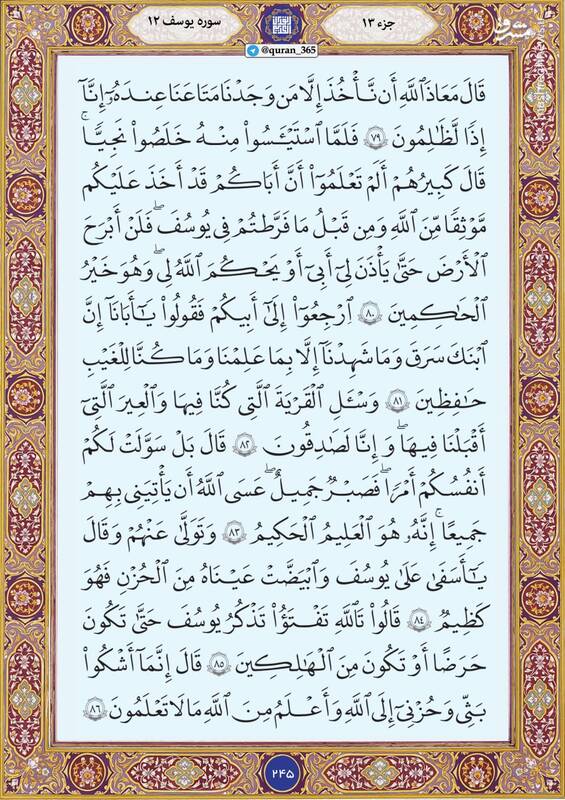 جزء ۱۳
سوره یوسف ۱۲
@quran_365
قَالَ مَعَاذَ اللَّهِ أَن نَّأْخُذَ إِلَّا مَن وَجَدْنَا مَتَاعَنَا عِندَهُۥٓ إِنَّآ
إِذًا لَّظَالِمُونَ ﴿۷۹﴾ فَلَمَّا اسْتَيْـَٔسُوا۟ مِنْهُ خَلَصُوا۟ نَجِيًّا ۖ
قَالَ كَبِيرُهُمْ أَلَمْ تَعْلَمُوٓا۟ أَنَّ أَبَاكُمْ قَدْ أَخَذَ عَلَيْكُم
مَّوْثِقًا مِّنَ اللَّهِ وَمِن قَبْلُ مَا فَرَّطتُمْ فِي يُوسُفَ ۖ فَلَنْ أَبْرَحَ
الْأَرْضَ حَتَّىٰ يَأْذَنَ لِيٓ أَبِيٓ أَوْ يَحْكُمَ اللَّهُ لِي ۖ وَهُوَ خَيْرُ
الْحَاكِمِينَ ﴿۸۰﴾ ارْجِعُوٓا۟ إِلَىٰٓ أَبِيكُمْ فَقُولُوا۟ يَـٰٓأَبَانَآ إِنَّ
ابْنَكَ سَرَقَ وَمَا شَهِدْنَآ إِلَّا بِمَا عَلِمْنَا وَمَا كُنَّا لِلْغَيْبِ
حَافِظِينَ ﴿۸۱﴾ وَسْـَٔلِ الْقَرْيَةَ الَّتِي كُنَّا فِيهَا وَالْعِيرَ الَّتِيٓ
أَقْبَلْنَا فِيهَا ۖ وَإِنَّا لَصَادِقُونَ ﴿۸۲﴾ قَالَ بَلْ سَوَّلَتْ لَكُمْ
أَنفُسُكُمْ أَمْرًا ۖ فَصَبْرٌ جَمِيلٌ ۖ عَسَى اللَّهُ أَن يَأْتِيَنِي بِهِمْ
جَمِيعًا ۚ إِنَّهُۥ هُوَ الْعَلِيمُ الْحَكِيمُ ﴿۸۳﴾ وَتَوَلَّىٰ عَنْهُمْ وَقَالَ
يَـٰٓأَسَفَىٰ عَلَىٰ يُوسُفَ وَابْيَضَّتْ عَيْنَاهُ مِنَ الْحُزْنِ فَهُوَ
كَظِيمٌ ﴿۸۴﴾ قَالُوا۟ تَاللَّهِ تَفْتَؤُا۟ تَذْكُرُ يُوسُفَ حَتَّىٰ تَكُونَ
حَرَضًا أَوْ تَكُونَ مِنَ الْهَالِكِينَ ﴿۸۵﴾ قَالَ إِنَّمَآ أَشْكُوا۟
بَثِّي وَحُزْنِيٓ إِلَى اللَّهِ وَأَعْلَمُ مِنَ اللَّهِ مَا لَا تَعْلَمُونَ ﴿۸۶﴾
۲۴۵